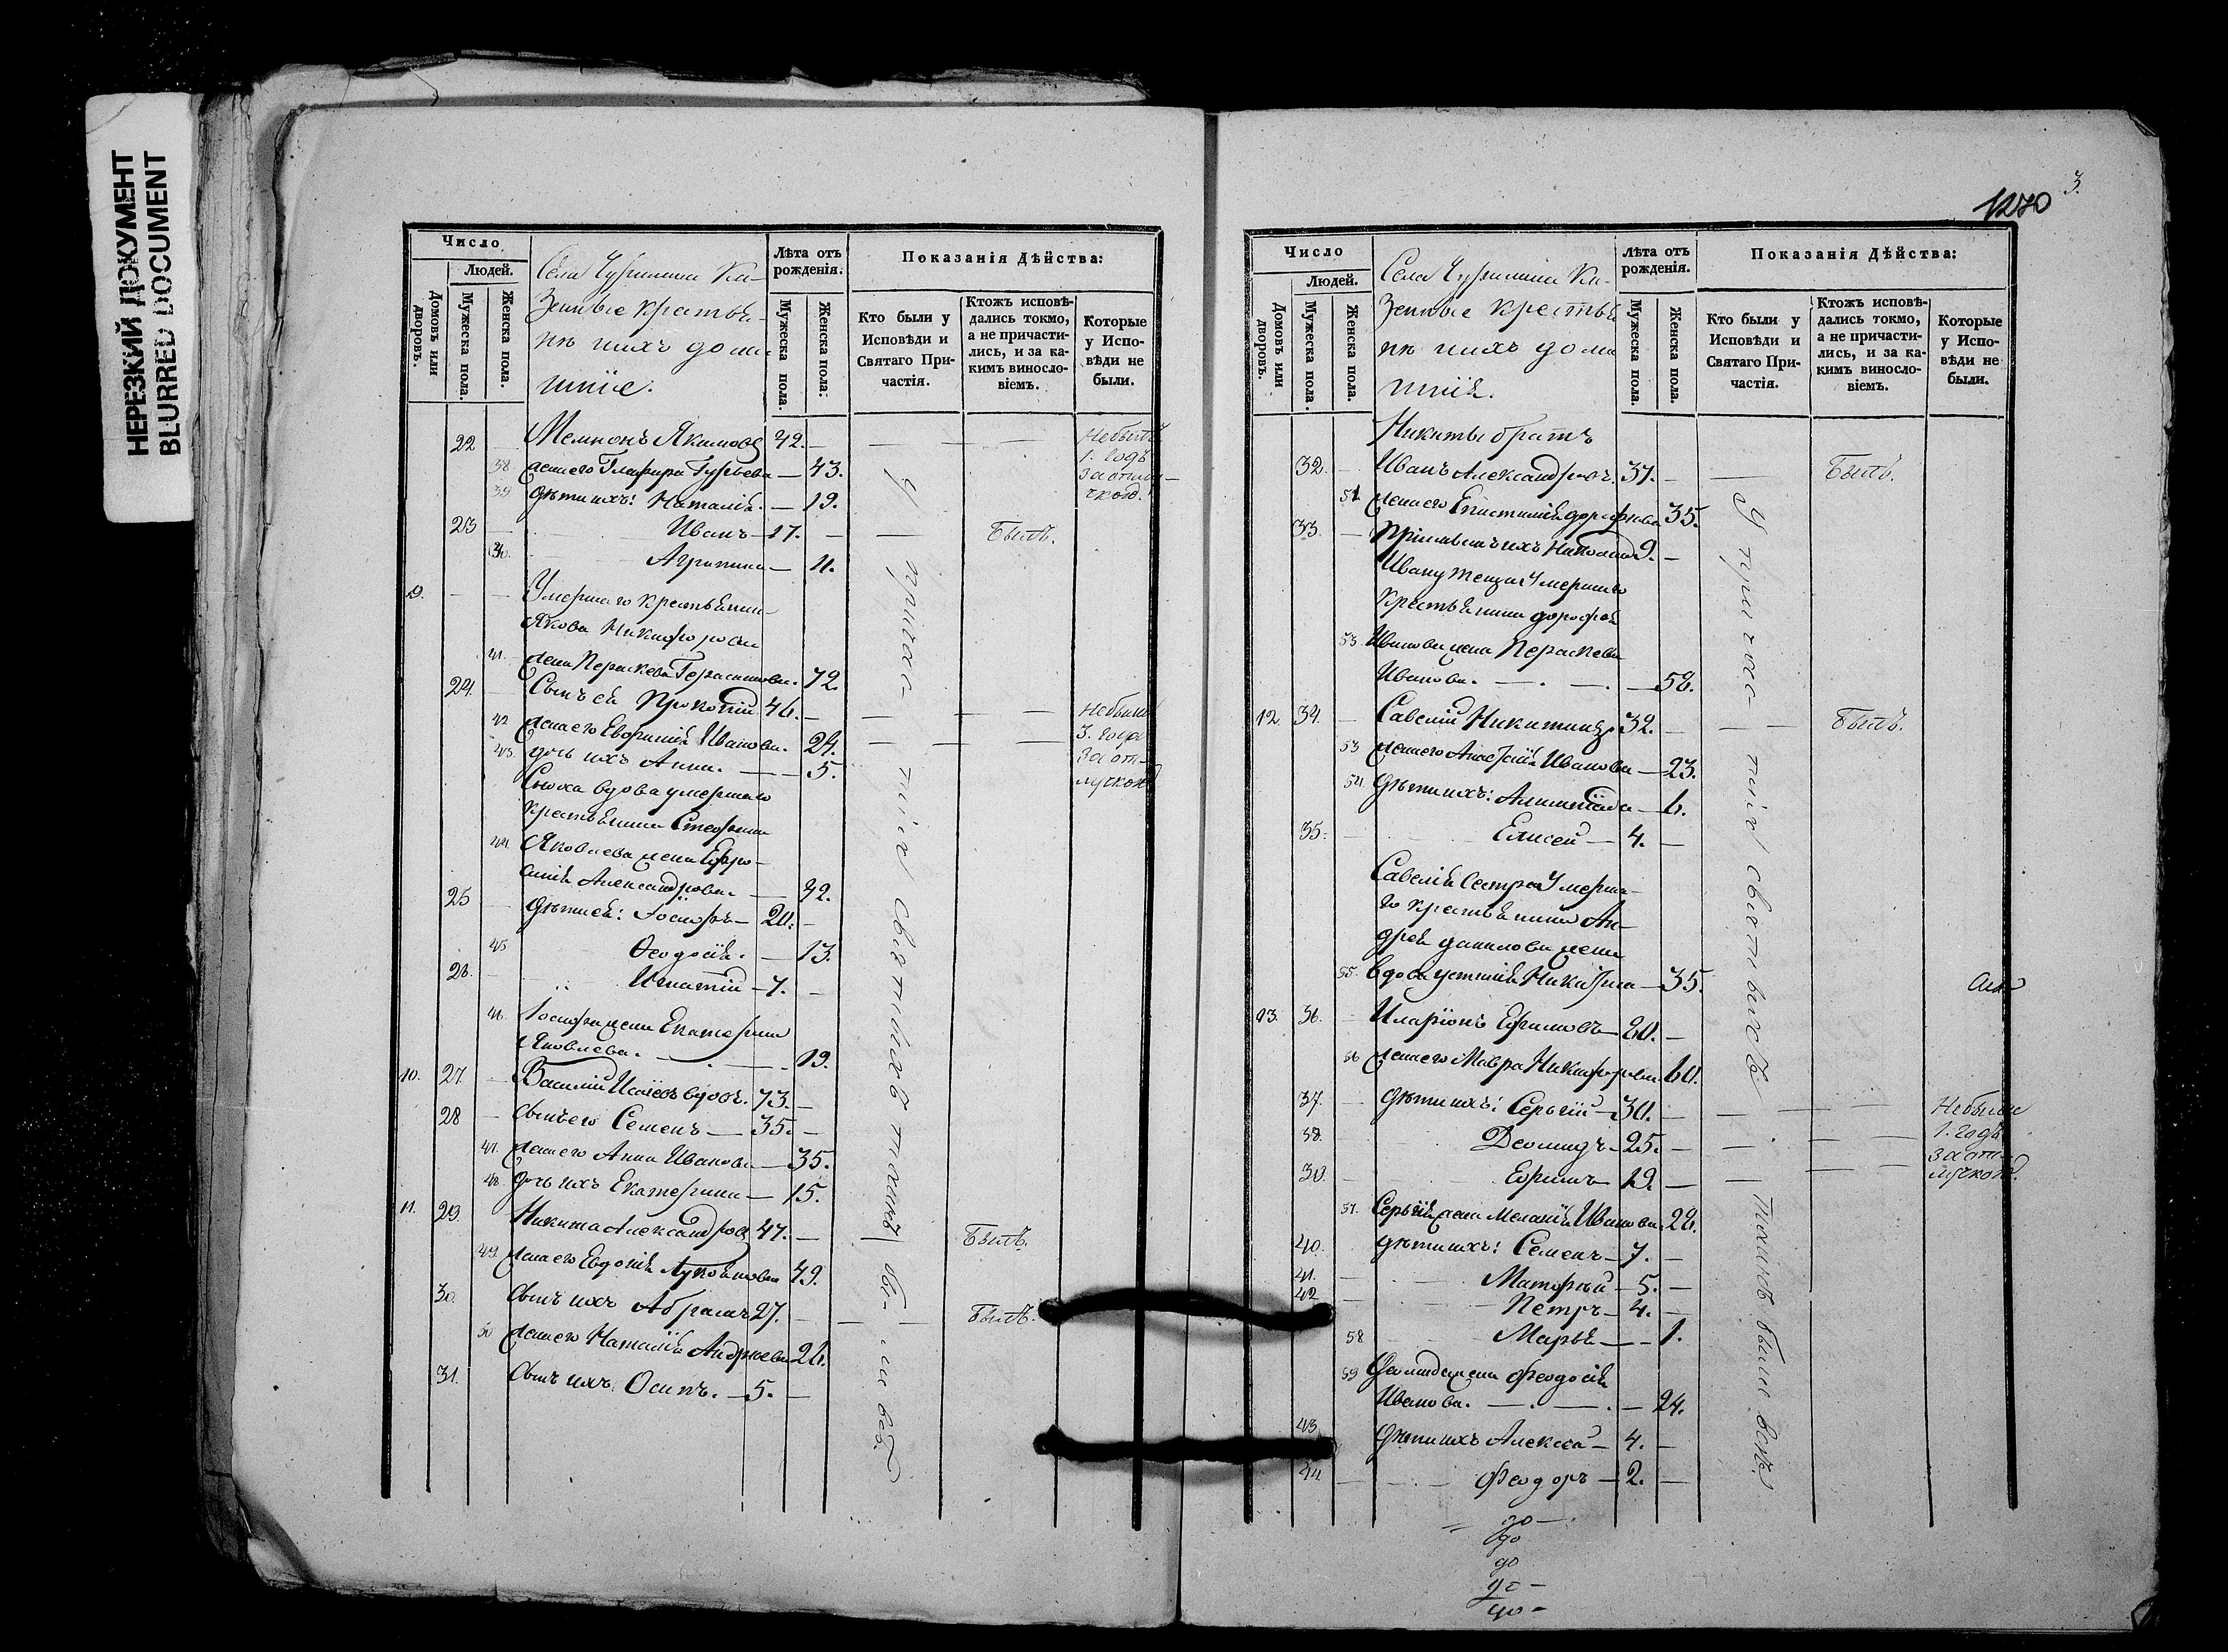 НЕРЕЗКИЙ ДОКУМЕНТ
BLURRED DOCUMENT
Число
Людей.
Домовъ или дворовъ.
Мужеска пола.
Женска пола.
Села Чурилина Ка-
зенные крестья-
не ихъ дома-
шніе.
Лѣта отъ рожденія.
Мужеска пола.
Женска пола.
Показанія Дѣйства:
Кто были у Исповѣди и Святаго При-частія.
Ктожъ исповѣ-дались токмо, а не причасти-лись, и за ка-кимъ винosло-віемъ.
Которые у Испо-вѣди не были.
22 Мемнонъ Якимовъ 42. Небылъ
38 жена его Глафира Гурьева — 43. 1. годъ
39 дѣти ихъ: Наталія. — 19.
23 Иванъ — 17. — Былъ.
40. Агрипина — 11.
9. Умершаго крестьянина
Якова Никифорова
41. жена Параскева Герасимова. 72.
24. Сынъ ея Прокопій 46. — Небыли
42 жена его Евфимія Иванова. 24. 3. года
43. дочь ихъ Анна. — 5. за от-
Сноха вдова умершаго лучкою
крестьянина Стефана
44 Яковлева жена Ефро-
синія Александрова. — 42.
25 дѣти ея: Іосифъ — 20. —
45 Ѳеодосія. — 13.
26. Игнатій — 7. —
46. Іосифа жена Екатерина
Яковлева. — 19.
10. 27. Василій Исаевъ вдовъ. 73. —
28 сынъ его Семенъ — 35. —
47. жена его Анна Иванова — 35.
48 дочь ихъ Екатерина — 15.
11. 29. Никита Александровъ 47. — Былъ.
49. жена его Евдокія Лукоянова 49.
30. сынъ ихъ Абрамъ 27. — Былъ.
50 жена его Наталія Андреева 26.
31. сынъ ихъ Осипъ. — 5. —
У причастія святыхъ таинъ
1270
3.
Число
Людей.
Домовъ или дворовъ.
Мужеска пола.
Женска пола.
Села Чурилина Ка-
зенные крестья
не ихъ дома
шнія.
Лѣта отъ рожденія.
Мужеска пола.
Женска пола.
Показанія Дѣйства:
Кто были у Исповѣди и Святаго При-частія.
Ктожъ исповѣ-дались токмо, а не причасти-лись, и за ка-кимъ винosло-віемъ.
Которые у Испо-вѣди не были.
Никиты братъ
32. Иванъ Александровъ. 37. — Былъ.
51 жена его Епистимія Дорофеева 35.
33. 9. —
Ивану теща Умершаго
крестьянина Дорофея
53. Иванова жена Параскева
Иванова. — . — . — 58.
12 34. Савелій Никитинъ 32. — Былъ.
53 жена его Анастасія Иванова — 23.
54. дѣти ихъ: — 6.
35. Елисей — 4. —
Савелія сестра Умерша-
го крестьянина Ан-
дрея Данилова жена
55. вдова Устинія Никитина — 35.
13. 36. Иларіонъ Ефимовъ — 60. —
56 жена его Мавра Никифорова. 60.
37. дѣти ихъ: Сергій — 30. — Небыли
38. Деомидъ — 25. — 1. годъ
39. Ефимъ — 19. — за от-
57. Сергія жена Меланія Иванова 28. лучкою.
40. дѣти ихъ: Семенъ — 7. —
41. Матофей — 5. —
42 Петръ — 4. —
58 Марья — 1.
59 Деомида жена Феодосія
Иванова. — . — . — 24.
43. дѣти ихъ Алексей — 4. —
44 Феодоръ — 2. —
У причастія святыхъ
таинъ были всѣ
до
до
до